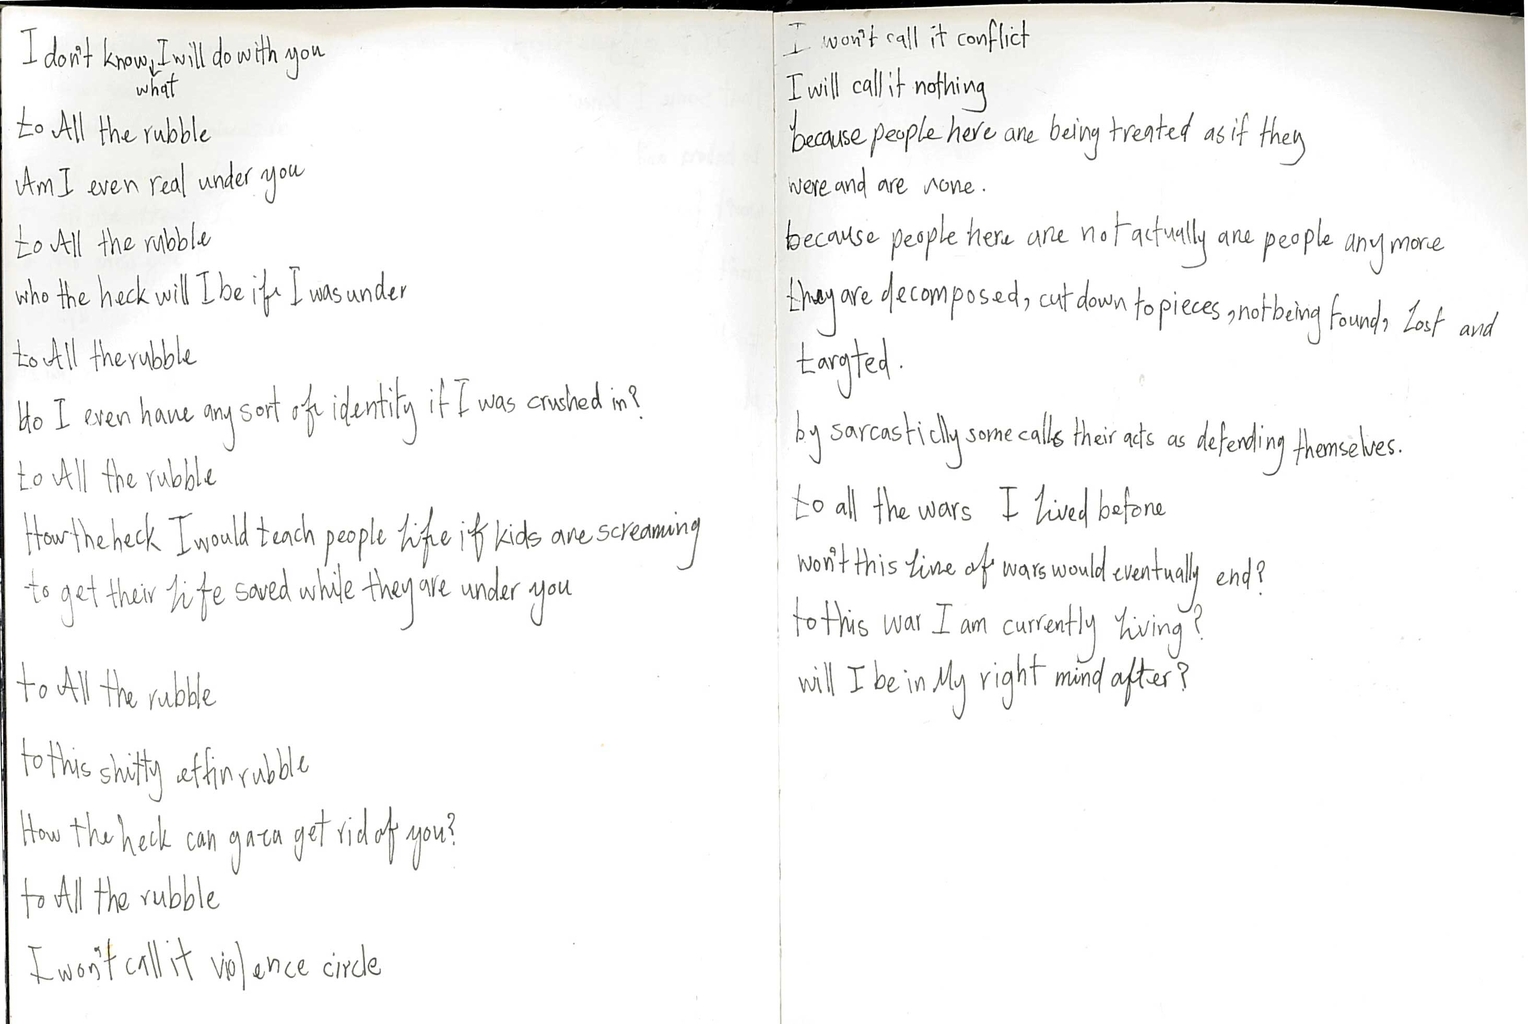 I don't know, what I will do with you
to All the rubble
Am I even real under you
to All the rubble
who the heck will I be if I was under
to All the rubble
do I even have any sort of identity if I was crushed in?
to All the rubble
How the heck I would teach people life if kids are screaming
to get their life saved while they are under you
to All the rubble
to this shitty effin rubble
How the heck can gaza get rid of you?
to All the rubble
I won't call it violence circle
I won't call it conflict
I will call it nothing
because people here are being treated as if they
were and are none.
because people here are not actually are people anymore
they are decomposed, cut down to pieces, not being found, Lost and
targted.
by sarcasticlly some calls their acts as defending themselves.
to all the wars I lived before
won't this line of wars would eventually end?
to this war I am currently living?
will I be in My right mind after?